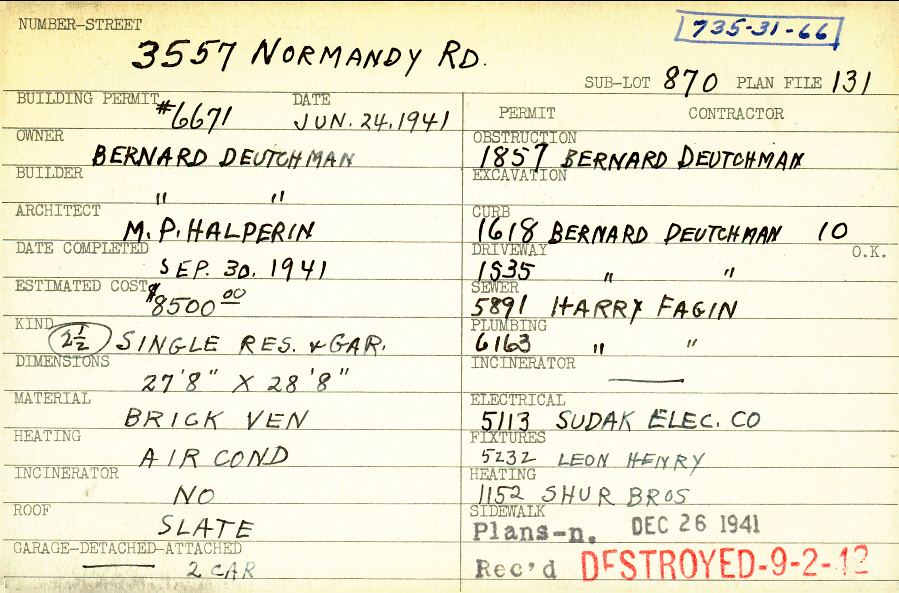 NUMBER-STREET
735-31-66
3557 NORMANDY RD.
SUB-LOT 870 PLAN FILE 131
BUILDING PERMIT #6671 DATE JUN. 24, 1941
OWNER BERNARD DEUTCHMAN
BUILDER " "
ARCHITECT M. P. HALPERIN
DATE COMPLETED SEP. 30, 1941
ESTIMATED COST $8500 00
KIND 2½ SINGLE RES. & GAR.
DIMENSIONS 27'8" X 28'8"
MATERIAL BRICK VEN
HEATING AIR COND
INCINERATOR NO
ROOF SLATE
GARAGE-DETACHED-ATTACHED
2 CAR
PERMIT CONTRACTOR
OBSTRUCTION 1857 BERNARD DEUTCHMAN
EXCAVATION
CURB 1618 BERNARD DEUTCHMAN 10
DRIVEWAY 1535 " " O.K.
SEWER 5891 HARRY FAGIN
PLUMBING 6163 " "
INCINERATOR —
ELECTRICAL 5113 SUDAK ELEC. CO
FIXTURES 5232 LEON HENRY
HEATING 1152 SHUR BROS
SIDEWALK
Plans-n. DEC 26 1941
Rec'd DESTROYED-9-2-42